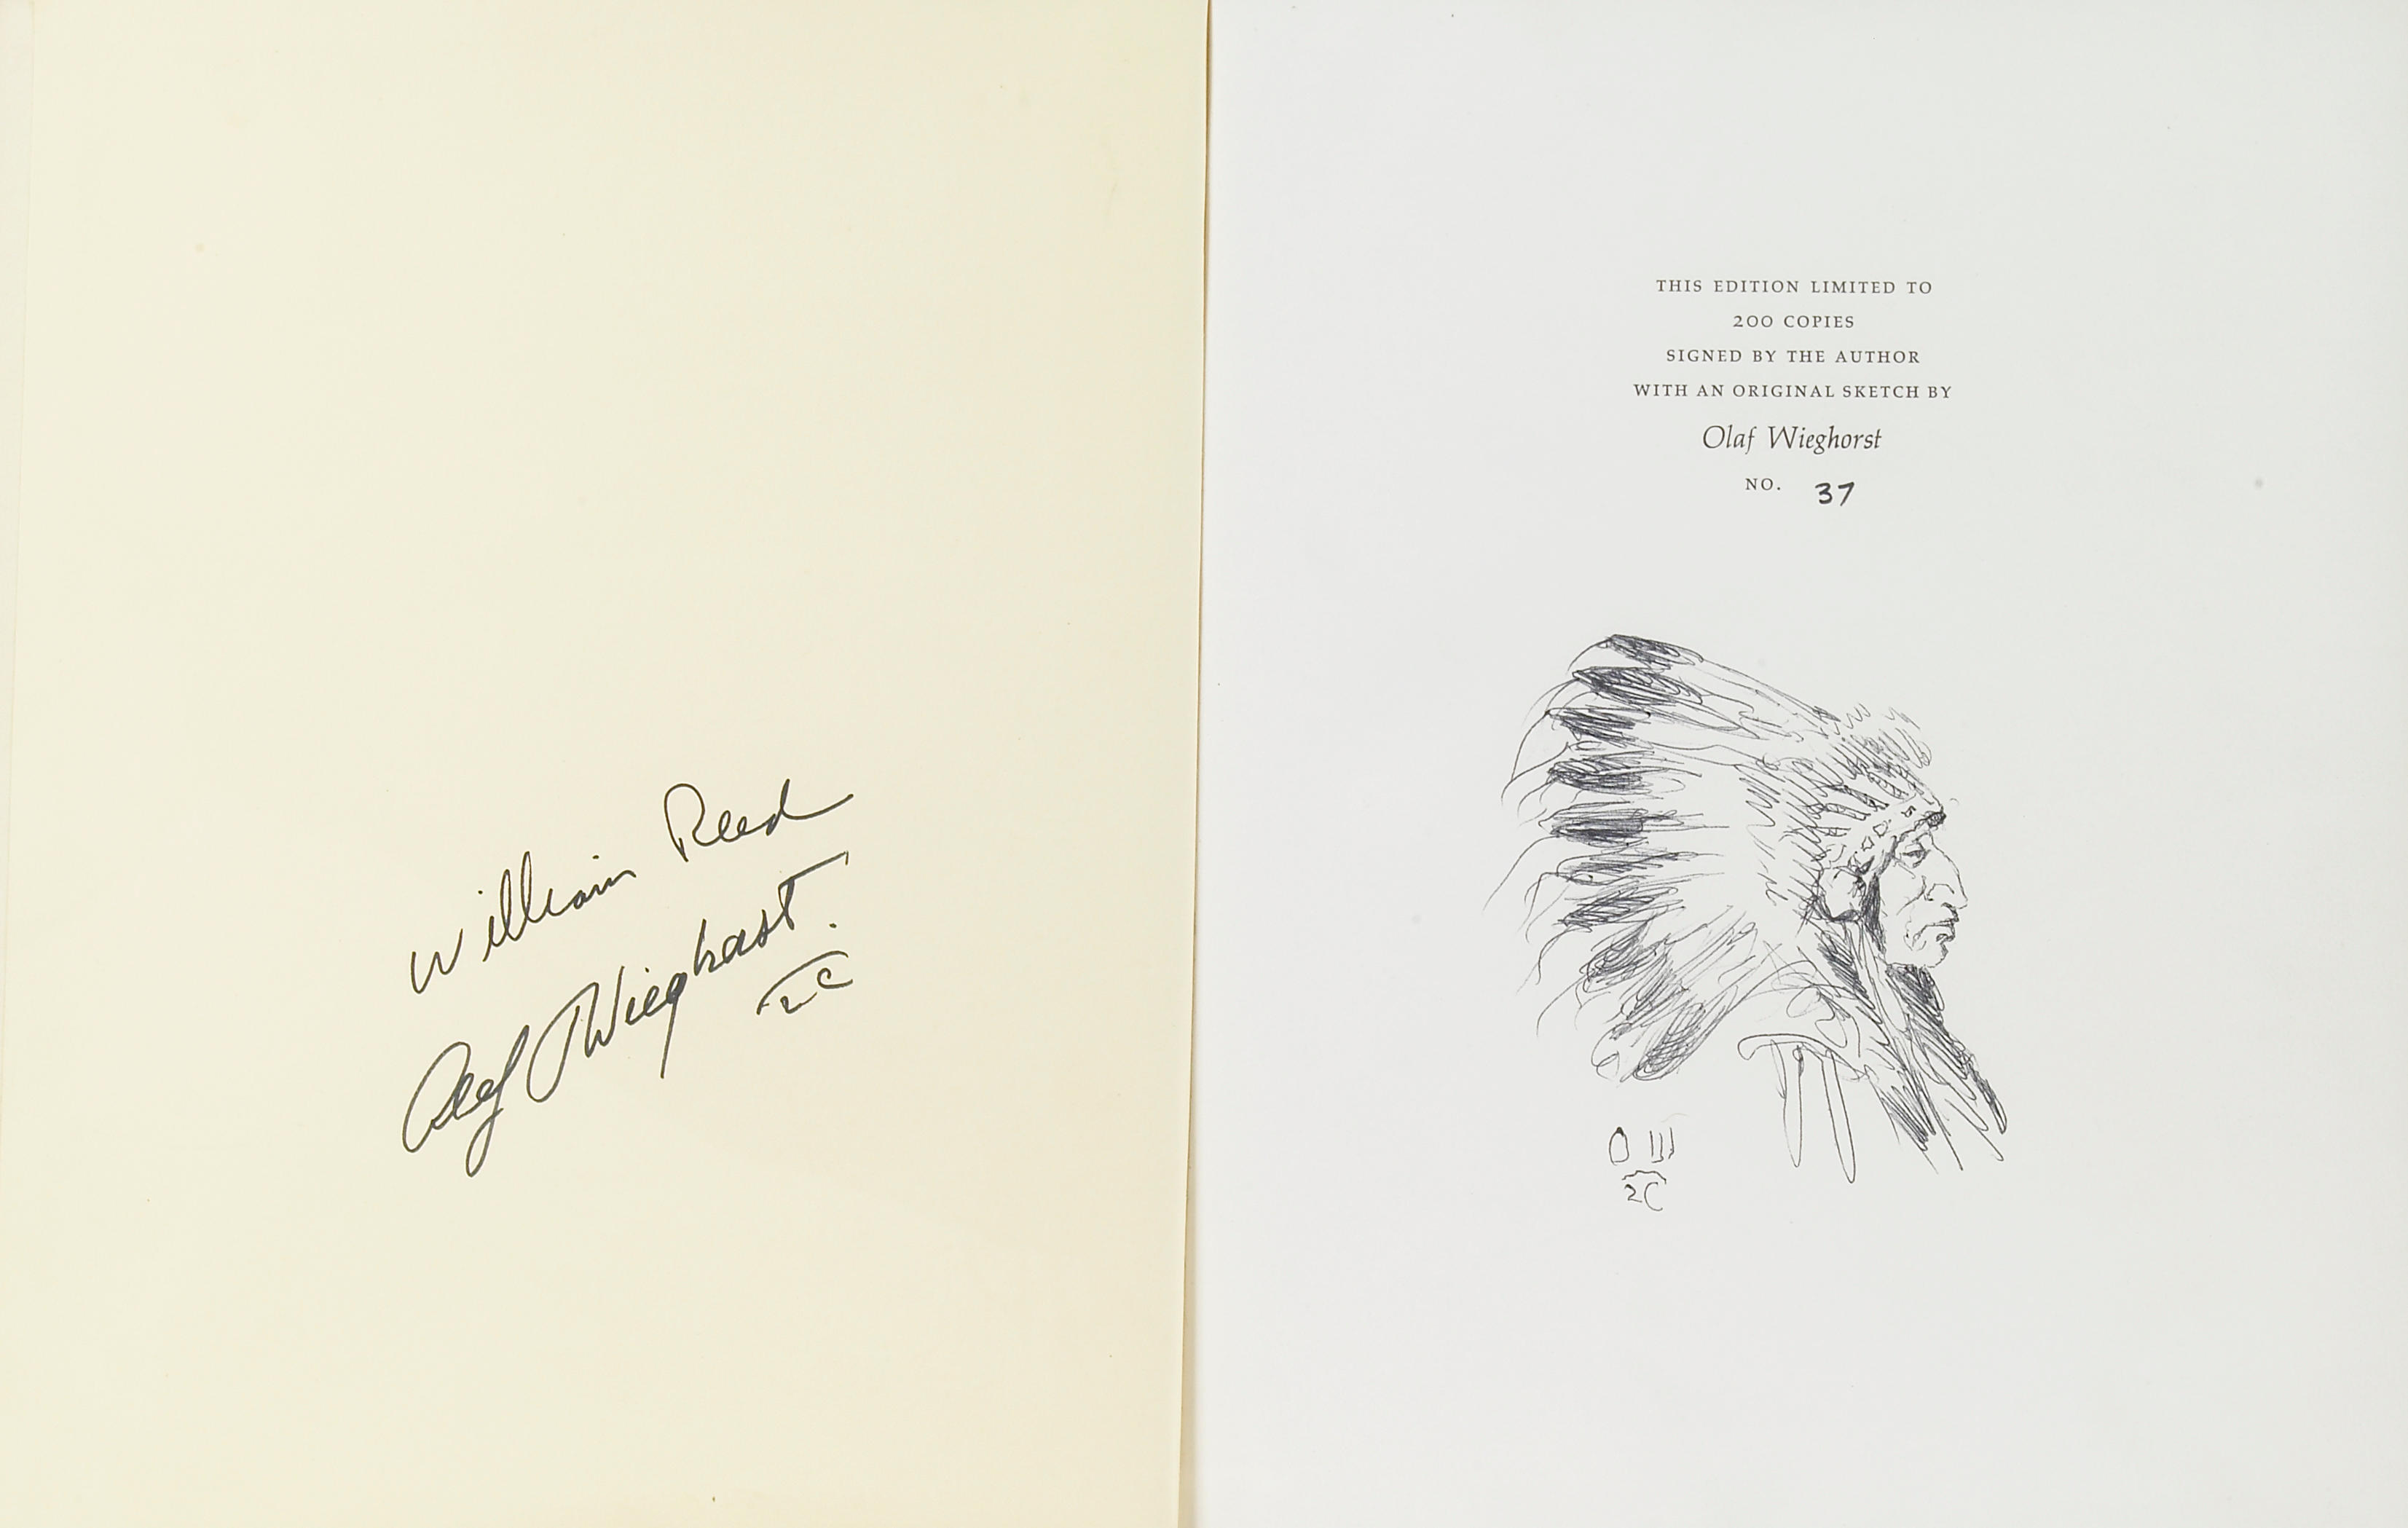 William Reed
Olaf Wieghorst.
2C
THIS EDITION LIMITED TO
200 COPIES
SIGNED BY THE AUTHOR
WITH AN ORIGINAL SKETCH BY
Olaf Wieghorst
NO. 37
O W
2C